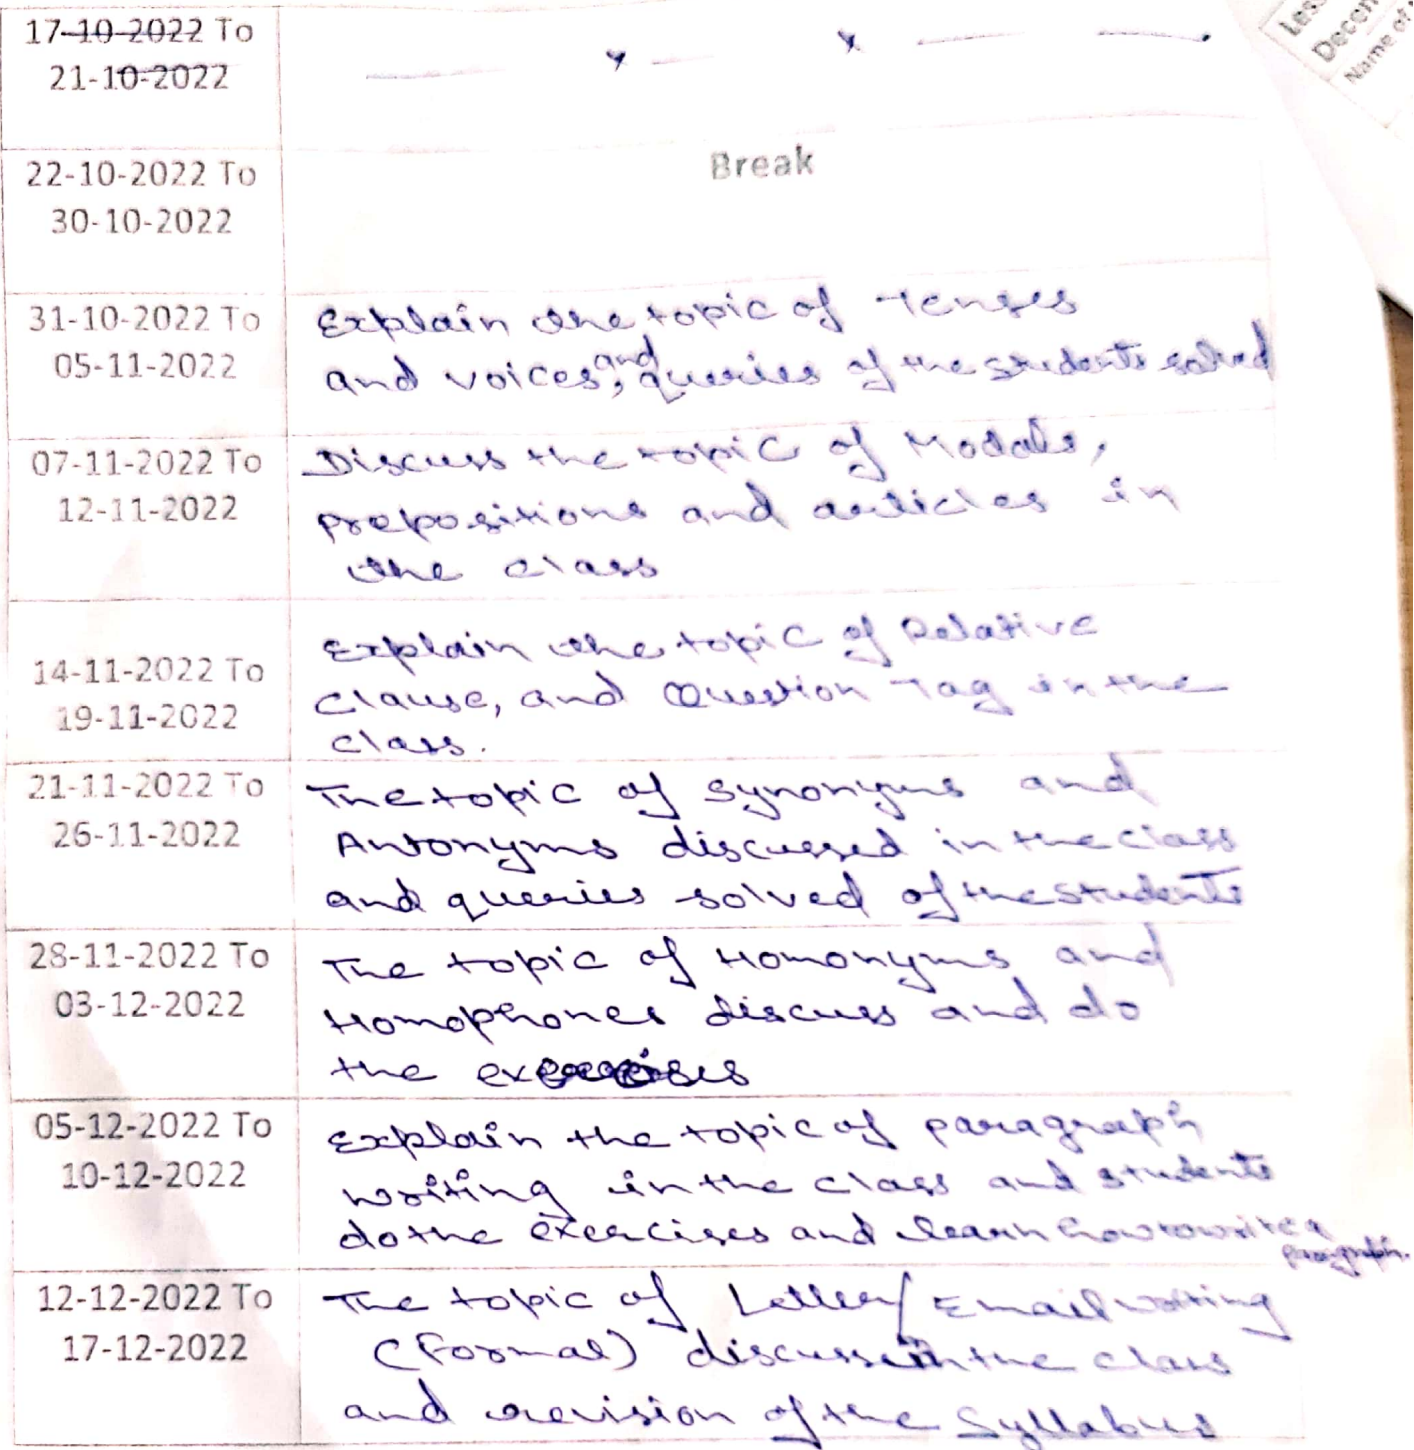 17-10-2022 To
21-10-2022
22-10-2022 To
30-10-2022
Break
31-10-2022 To
05-11-2022
Explain the topic of Tenses
and voices, and queries of the students solved
07-11-2022 To
12-11-2022
Discuss the topic of Modals,
prepositions and articles in
the class
14-11-2022 To
19-11-2022
Explain the topic of Relative
Clause, and Question Tag in the
class.
21-11-2022 To
26-11-2022
The topic of synonyms and
Antonyms discussed in the class
and queries solved of the students
28-11-2022 To
03-12-2022
The topic of Homonyms and
Homophones discuss and do
the exercises
05-12-2022 To
10-12-2022
Explain the topic of paragraph
writing in the class and students
do the exercises and learn how to write a
paragraph.
12-12-2022 To
17-12-2022
The topic of Letter/Email writing
(Formal) discuss in the class
and revision of the Syllabus
Name of